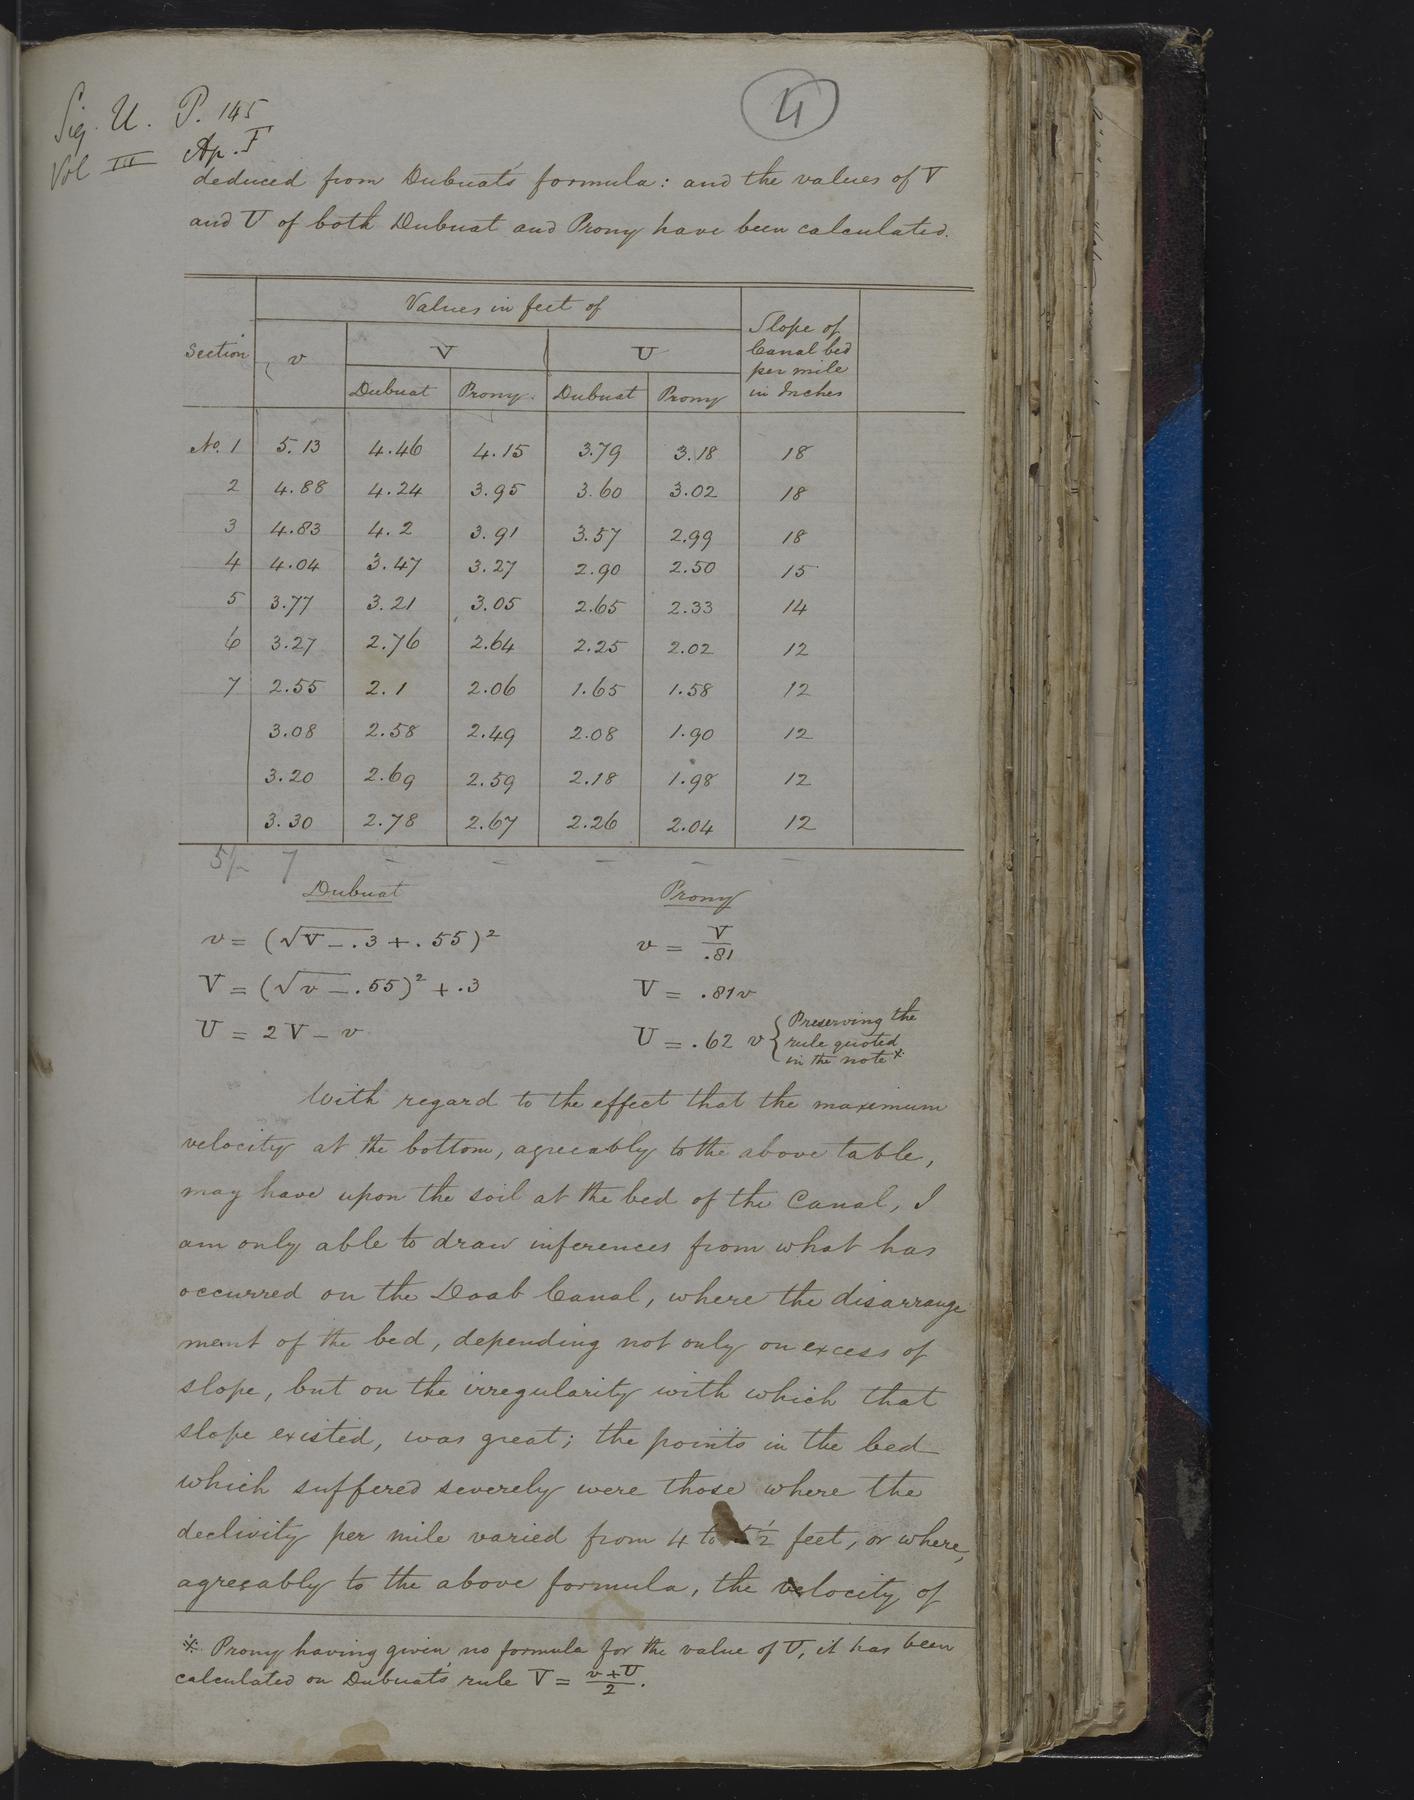 Sig. U. P. 145
Vol III Ap. F
4
deduced from Dubuat's formula: and the values of V
and U of both Dubuat and Prony have been calculated.
Section v Values in feet of Slope of Canal bed per mile in Inches
V U
Dubuat Prony Dubuat Prony
No. 1 5.13 4.46 4.15 3.79 3.18 18
2 4.88 4.24 3.95 3.60 3.02 18
3 4.83 4.2 3.91 3.57 2.99 18
4 4.04 3.47 3.27 2.90 2.50 15
5 3.77 3.21 3.05 2.65 2.33 14
6 3.27 2.76 2.64 2.25 2.02 12
7 2.55 2.1 2.06 1.65 1.58 12
3.08 2.58 2.49 2.08 1.90 12
3.20 2.69 2.59 2.18 1.98 12
3.30 2.78 2.67 2.26 2.04 12
Dubuat Prony
v = (√V - .3 + .55)² v = V/.81
V = (√v - .55)² + .3 V = .81v
U = 2V - v U = .62 v { Preserving the
rule quoted
in the note *
With regard to the effect that the maximum
velocity at the bottom, agreeably to the above table,
may have upon the soil at the bed of the Canal, I
am only able to draw inferences from what has
occurred on the Doab Canal, where the disarrange
ment of the bed, depending not only on excess of
slope, but on the irregularity with which that
slope existed, was great; the points in the bed
which suffered severely were those where the
declivity per mile varied from 4 to ½ feet, or where,
agreeably to the above formula, the velocity of
* Prony having given no formula for the value of U, it has been
calculated on Dubuat's rule V = v+U/2.